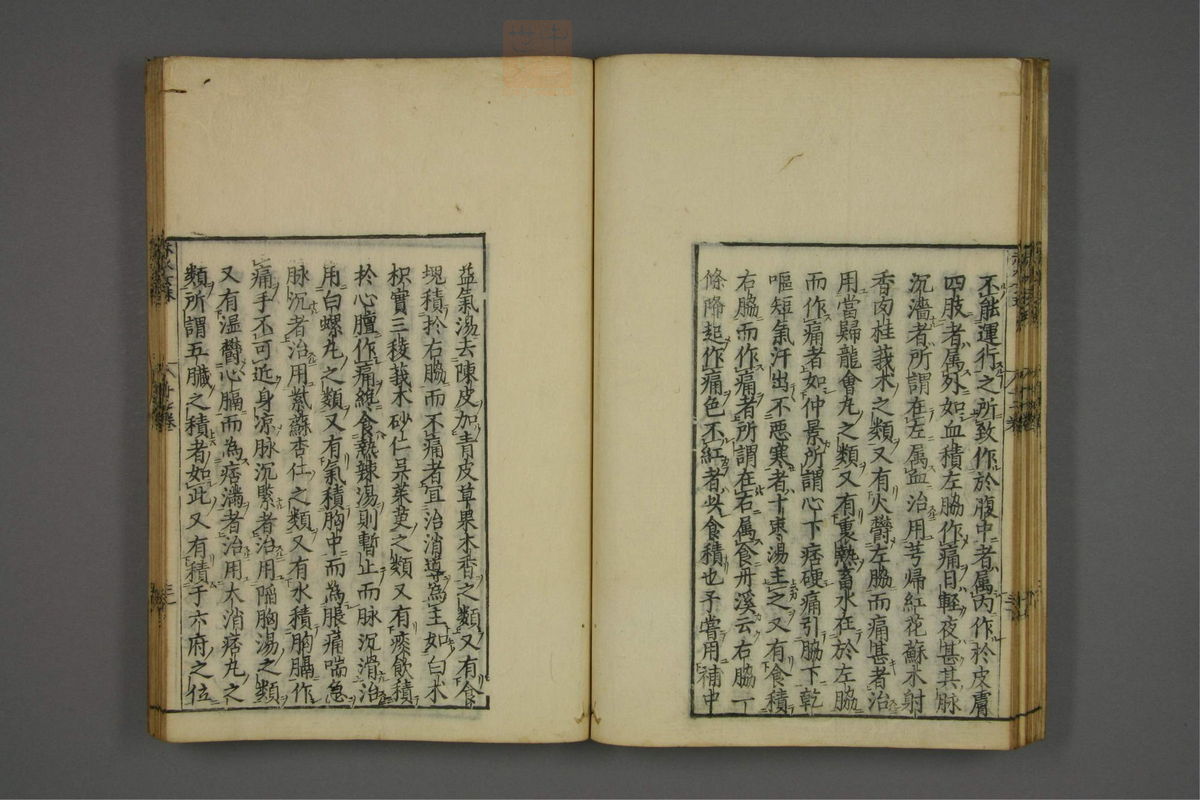 不能運行之所致作於腹中者属内作於皮膚
四肢者属外如血積左脇作痛日軽夜甚其脉
沉濇者所謂在左属血治用芎帰紅花蘇木射
香肉桂莪朮之類又有火欝左脇而痛甚者治
用當歸龍會丸之類又有裏熱畜水在於左脇
而作痛者如仲景所謂心下痞硬痛引脇下乾
嘔短氣汗出不悪寒者十棗湯主之又有食積
右脇而作痛者所謂在右属食丹溪云右脇一
條降起作痛色不紅者必食積也予嘗用補中
益氣湯去陳皮加青皮草果木香之類又有食
塊積於右脇而不痛者宜治消導為主如白朮
枳實三稜莪朮砂仁呉茱萸之類又有痰飲積
於心膻作痛綿食熱辣湯則暫止而脉沉滑治
用白螺丸之類又有氣積胸中而為脹痛喘急
脉沉者治用紫蘇杏仁之類又有水積胸膈作
痛手不可近身凉脉沉緊者治用陥胸湯之類
又有温欝心膈而為痞満者治用大消痞丸之
類所謂五臓之積者如此又有積于六府之位